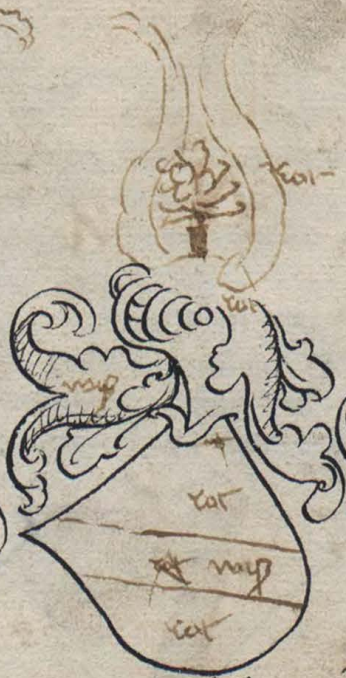 rot
rot
weiß
rot
weiß
rot